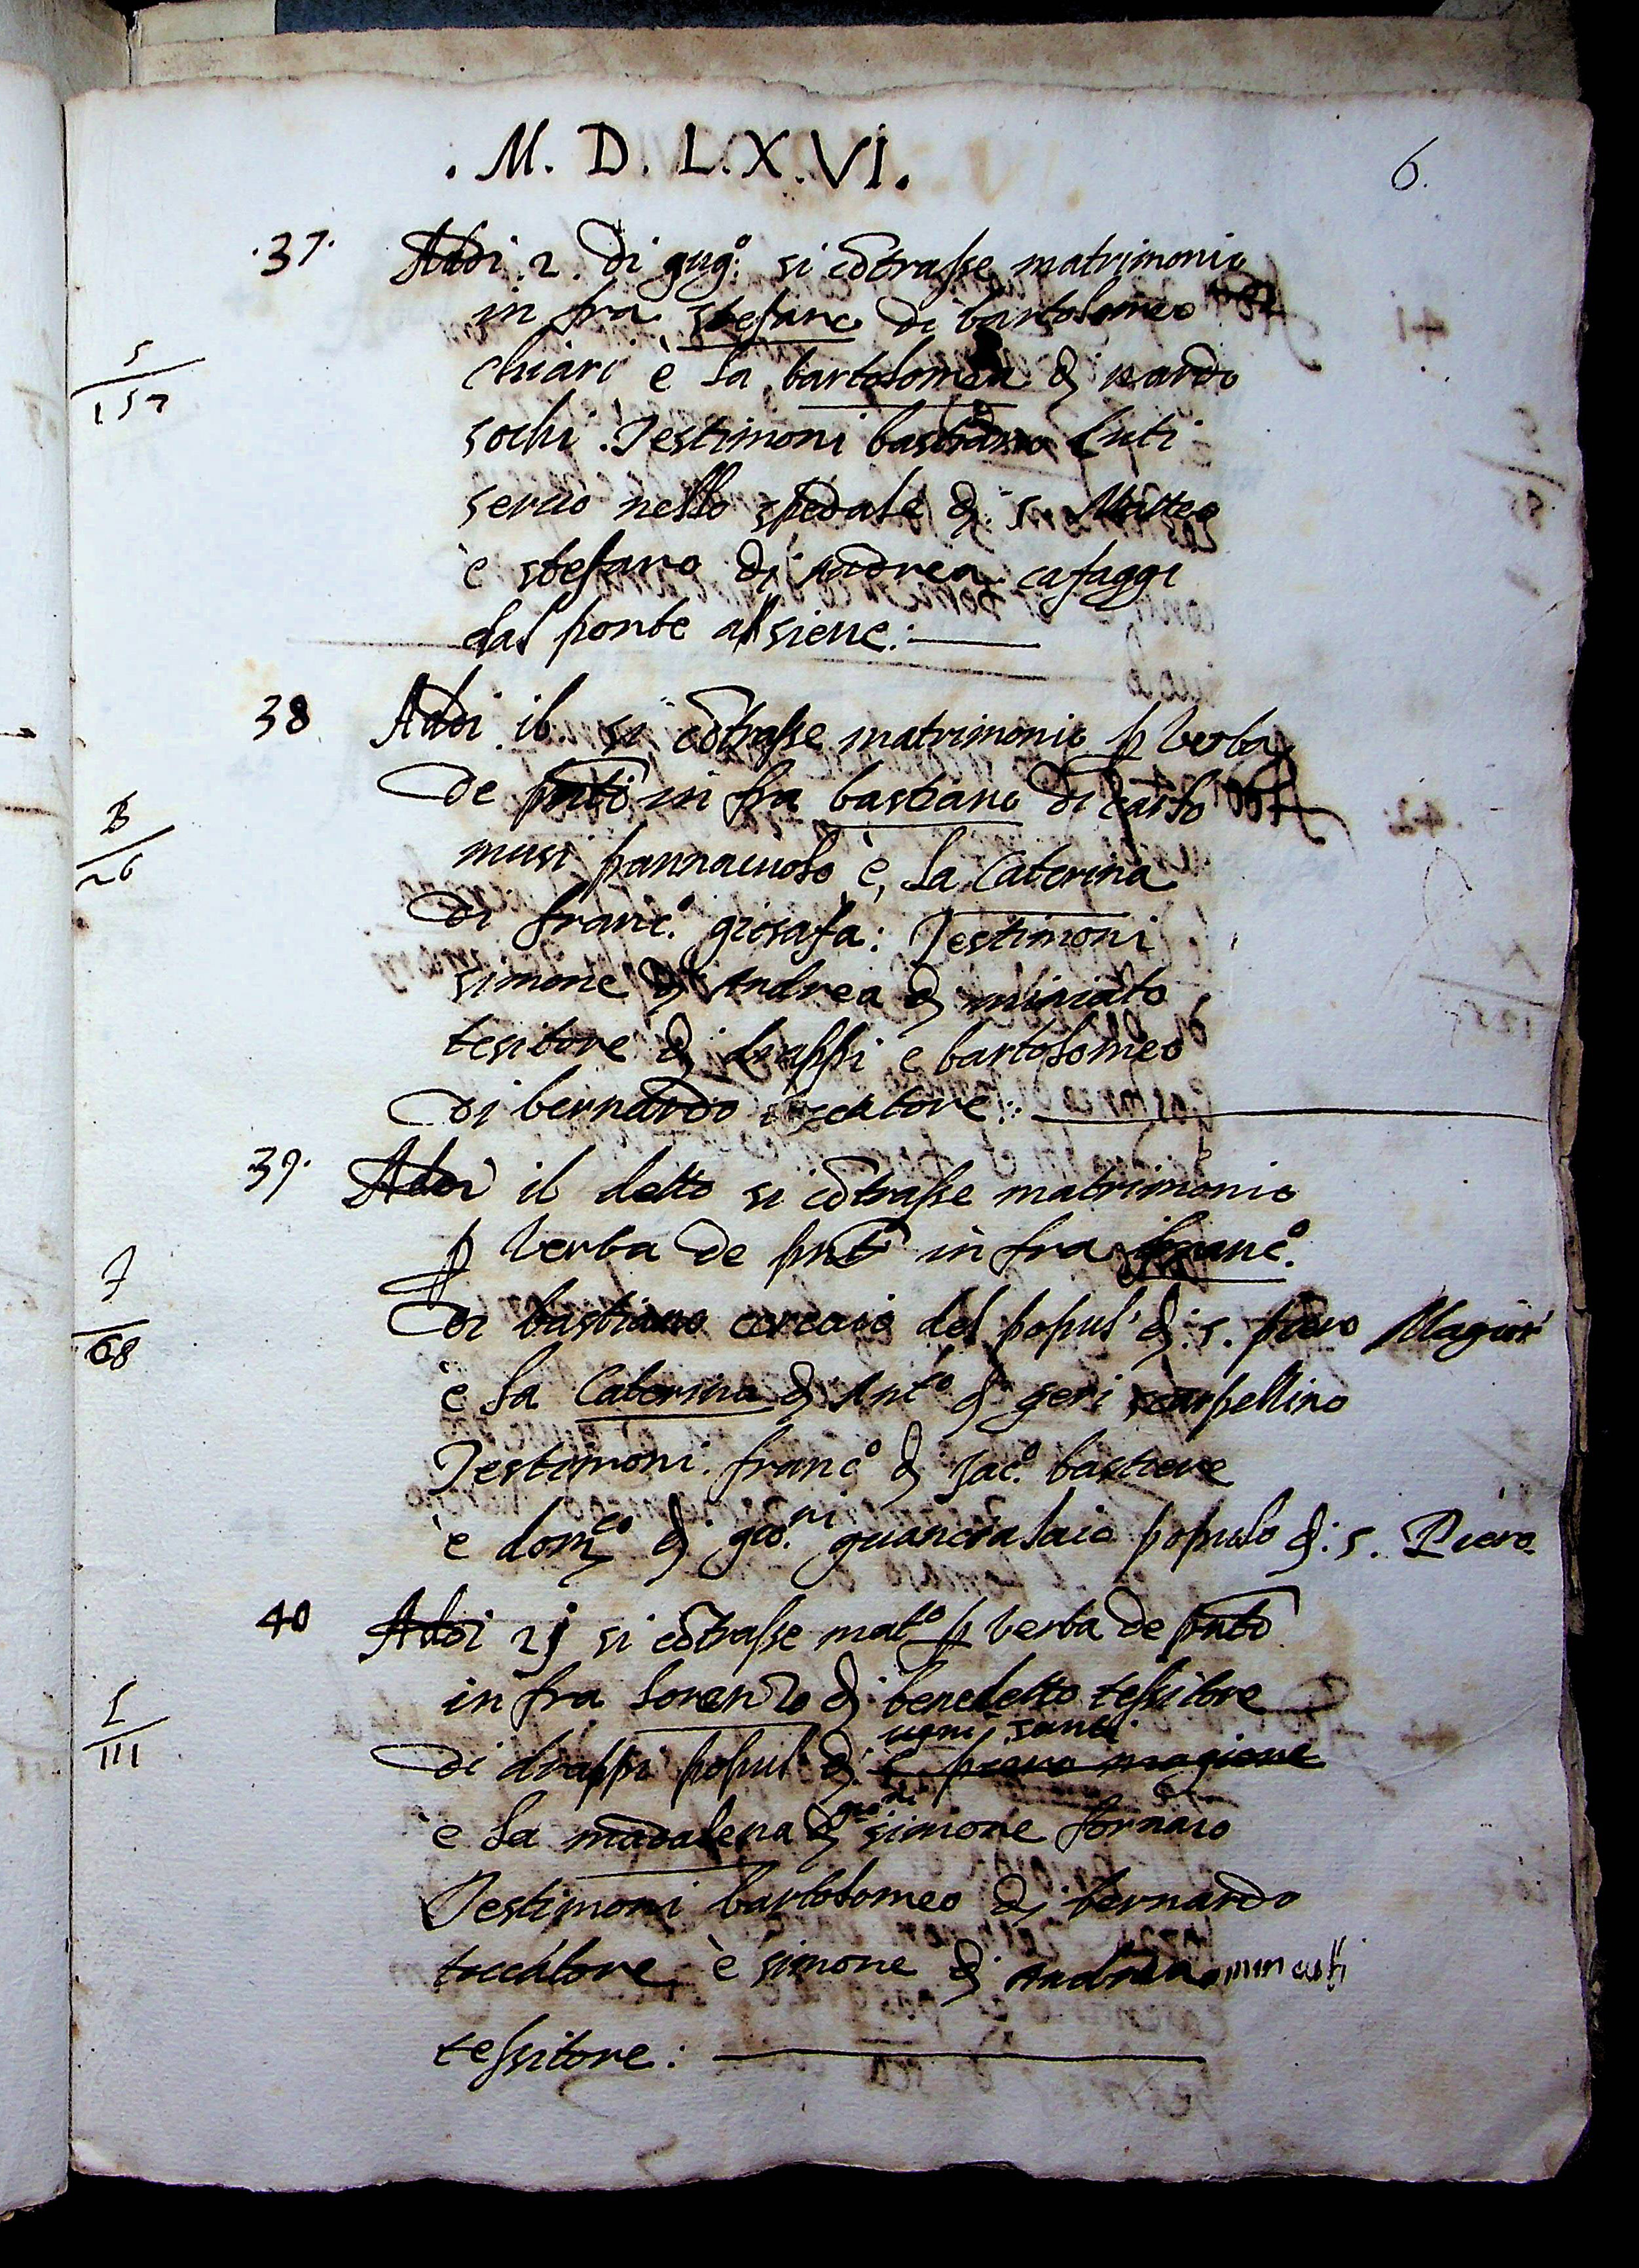 . M. D. L. X. VI.
6.
.37. Addi .2. di giug.º si cōtrasse matrimonio
in fra stefano di bartolomeo
5
157
chiari è la bartolomea di nardo
sochi. Testimoni bastiano luti
seruo nello spedale di: S. Matteo
è stefano di Andrea cafaggi
dal ponte al sieue:
38 Addi .i6. si cōtrasse matrimonio p verba
de pnti in fra bastiano di carlo
B
26
musi pannaiuolo è, la Caterina
di franc.º giosafa: Testimoni
simone di Andrea di miniato
tesitore di drappi è bartolomeo
di bernardo toccatore:
39. Addi il detto si cōtrasse matrimonio
p verba de pnti in fra franc.º
F
68
di bastiano coreaio del popul' di: s. piero Magior'
è la Caterina di Ant.º di geri scarpellino
Testimoni. franc.º di Jac.º bastiere
è dom.co di gio.ni guancialaio popolo di: s. Piero
40 Addi 2j si cōtrasse mat.º p verba de pnti
in fra lorenzo di benedetto tessitore
L
111
ogni santi
di drappi popul' di: S. piero magiore
gio di
è la madalena di simone fornaio
Testimoni bartolomeo di bernardo
toccatore è simone di Andrea miniati
tessitore: